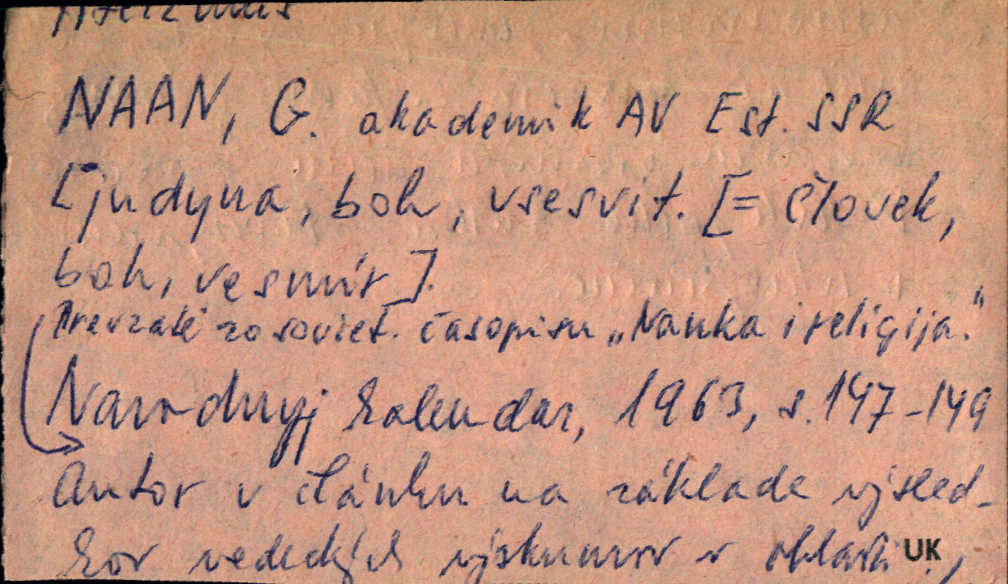 Ateizmus
NAAN, G. akademik AV Est. SSR
Ljudyna, boh, vsesvit. [= človek,
boh, vesmír].
Prevzaté zo soviet. časopisu „Nauka i religija."
Narodnyj kalendar, 1963, s. 147-149
Autor v článku na základe výsled-
kov vedeckých výskumov v oblasti
UK